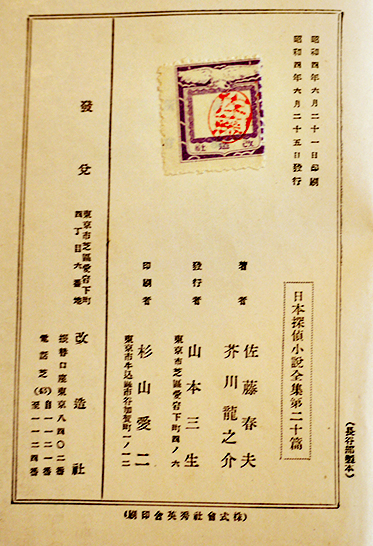 昭和四年六月二十一日印刷
昭和四年六月二十五日發行
日本探偵小說全集第二十篇
著者
佐藤春夫
芥川龍之介
發行者
山本三生
東京市芝區愛宕下町四ノ六
印刷者
杉山愛二
東京市牛込區市谷加賀町一ノ一二
發兌
東京市芝區愛宕下町
四丁目六番地
改造社
振替口座東京八四〇二番
電話芝(43)自一一二一番
至一一二四番
改造社
(長谷部製本)
(株式會社秀英舍印刷)